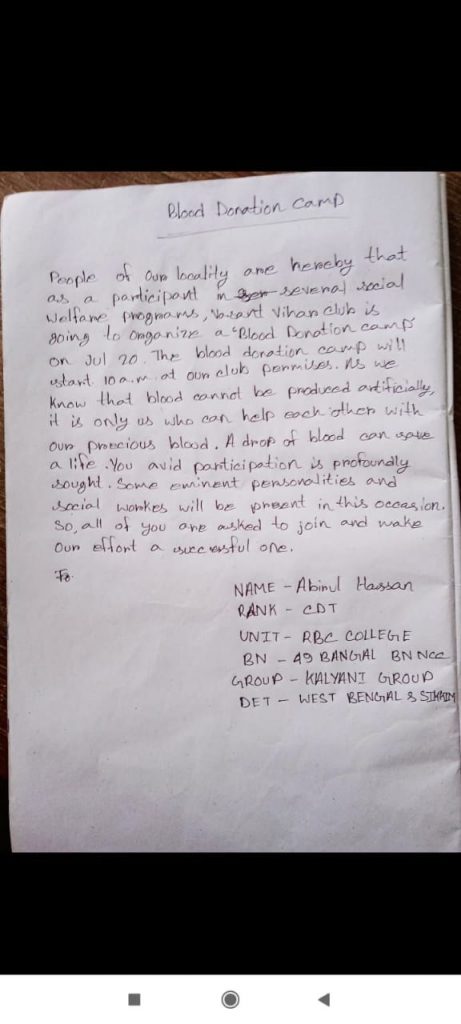 Blood Donation Camp
People of our locality are hereby that
as a participant in several social
Welfare programs, Vasant Vihar Club is
going to organize a "Blood Donation camp"
on Jul 20. The blood donation camp will
start 10 a.m. at our club permises. As we
know that blood cannot be produced artificially,
it is only us who can help each other with
our precious blood. A drop of blood can save
a life. You avid participation is profoundly
sought. Some eminent personalities and
social workes will be present in this occasion.
So, all of you are asked to join and wake
our effort a successful one.
NAME - Abirul Hassan
RANK - CDT
UNIT - RBC COLLEGE
BN - 49 BANGAL BN NCC
GROUP - KALYANI GROUP
DET - WEST BENGAL & SIKKIM